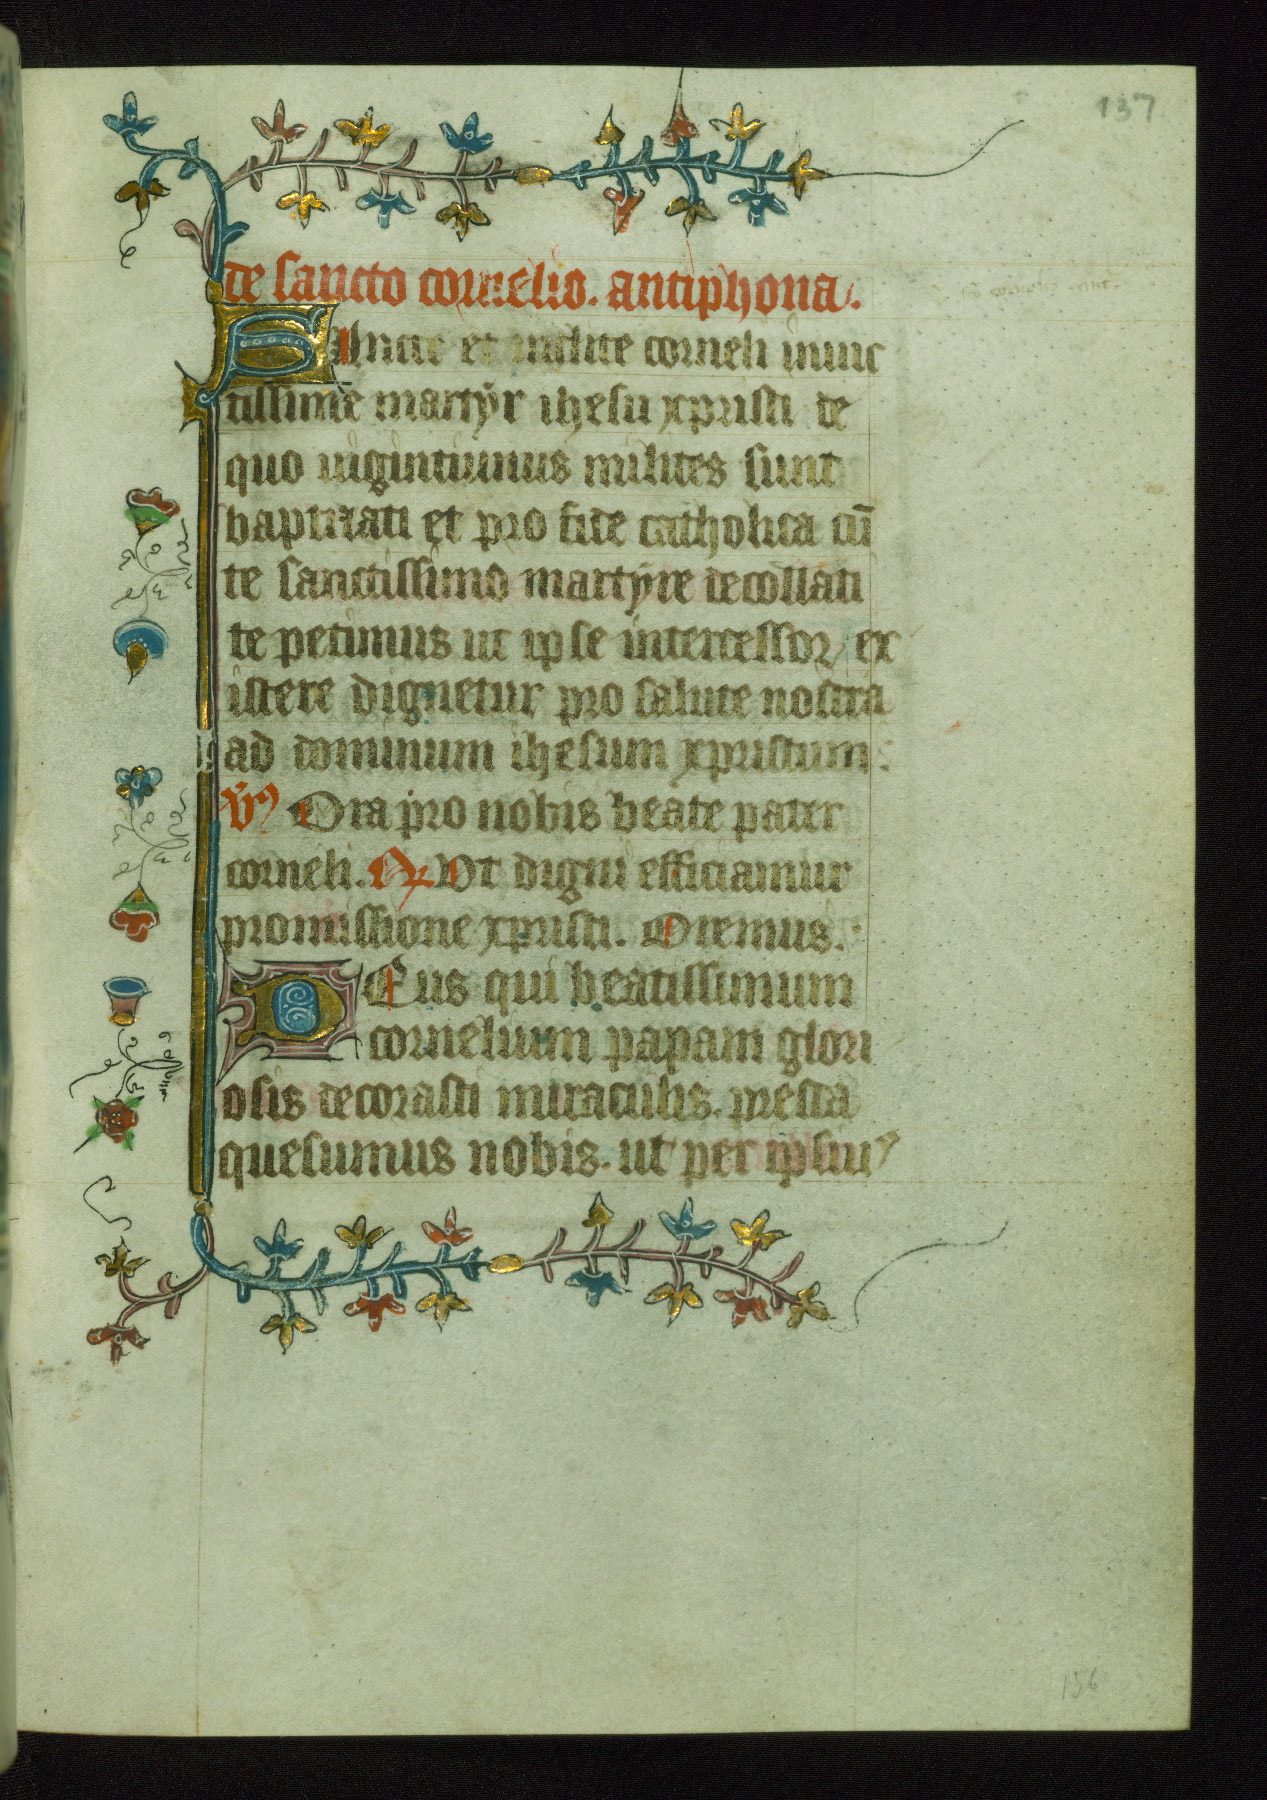 137
de sancto cornelio. antiphona.
Sancte et inclite corneli inuic
tissime martÿr ihesu xpristi de
quo uigintiunus milites sunt
baptizati et pro fide catholica cū
te sanctissimo martÿre decollati
te petimus ut ipse intercessor ex
istere dignetur pro salute nostra
ad dominum ihesum xpristum:
V Ora pro nobis beate pater
corneli. R Vt digni efficiamur
promissione xpristi. Oremus.
DEus qui beatissimum
cornelium papam glori
osis decorasti miraculis. presta
quesumus nobis. ut per ipsiuꝰ
136